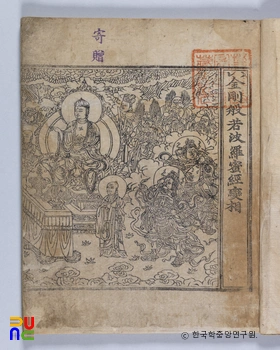 寄贈
金剛般若波羅蜜經變相
ⓒ 한국학중앙연구원